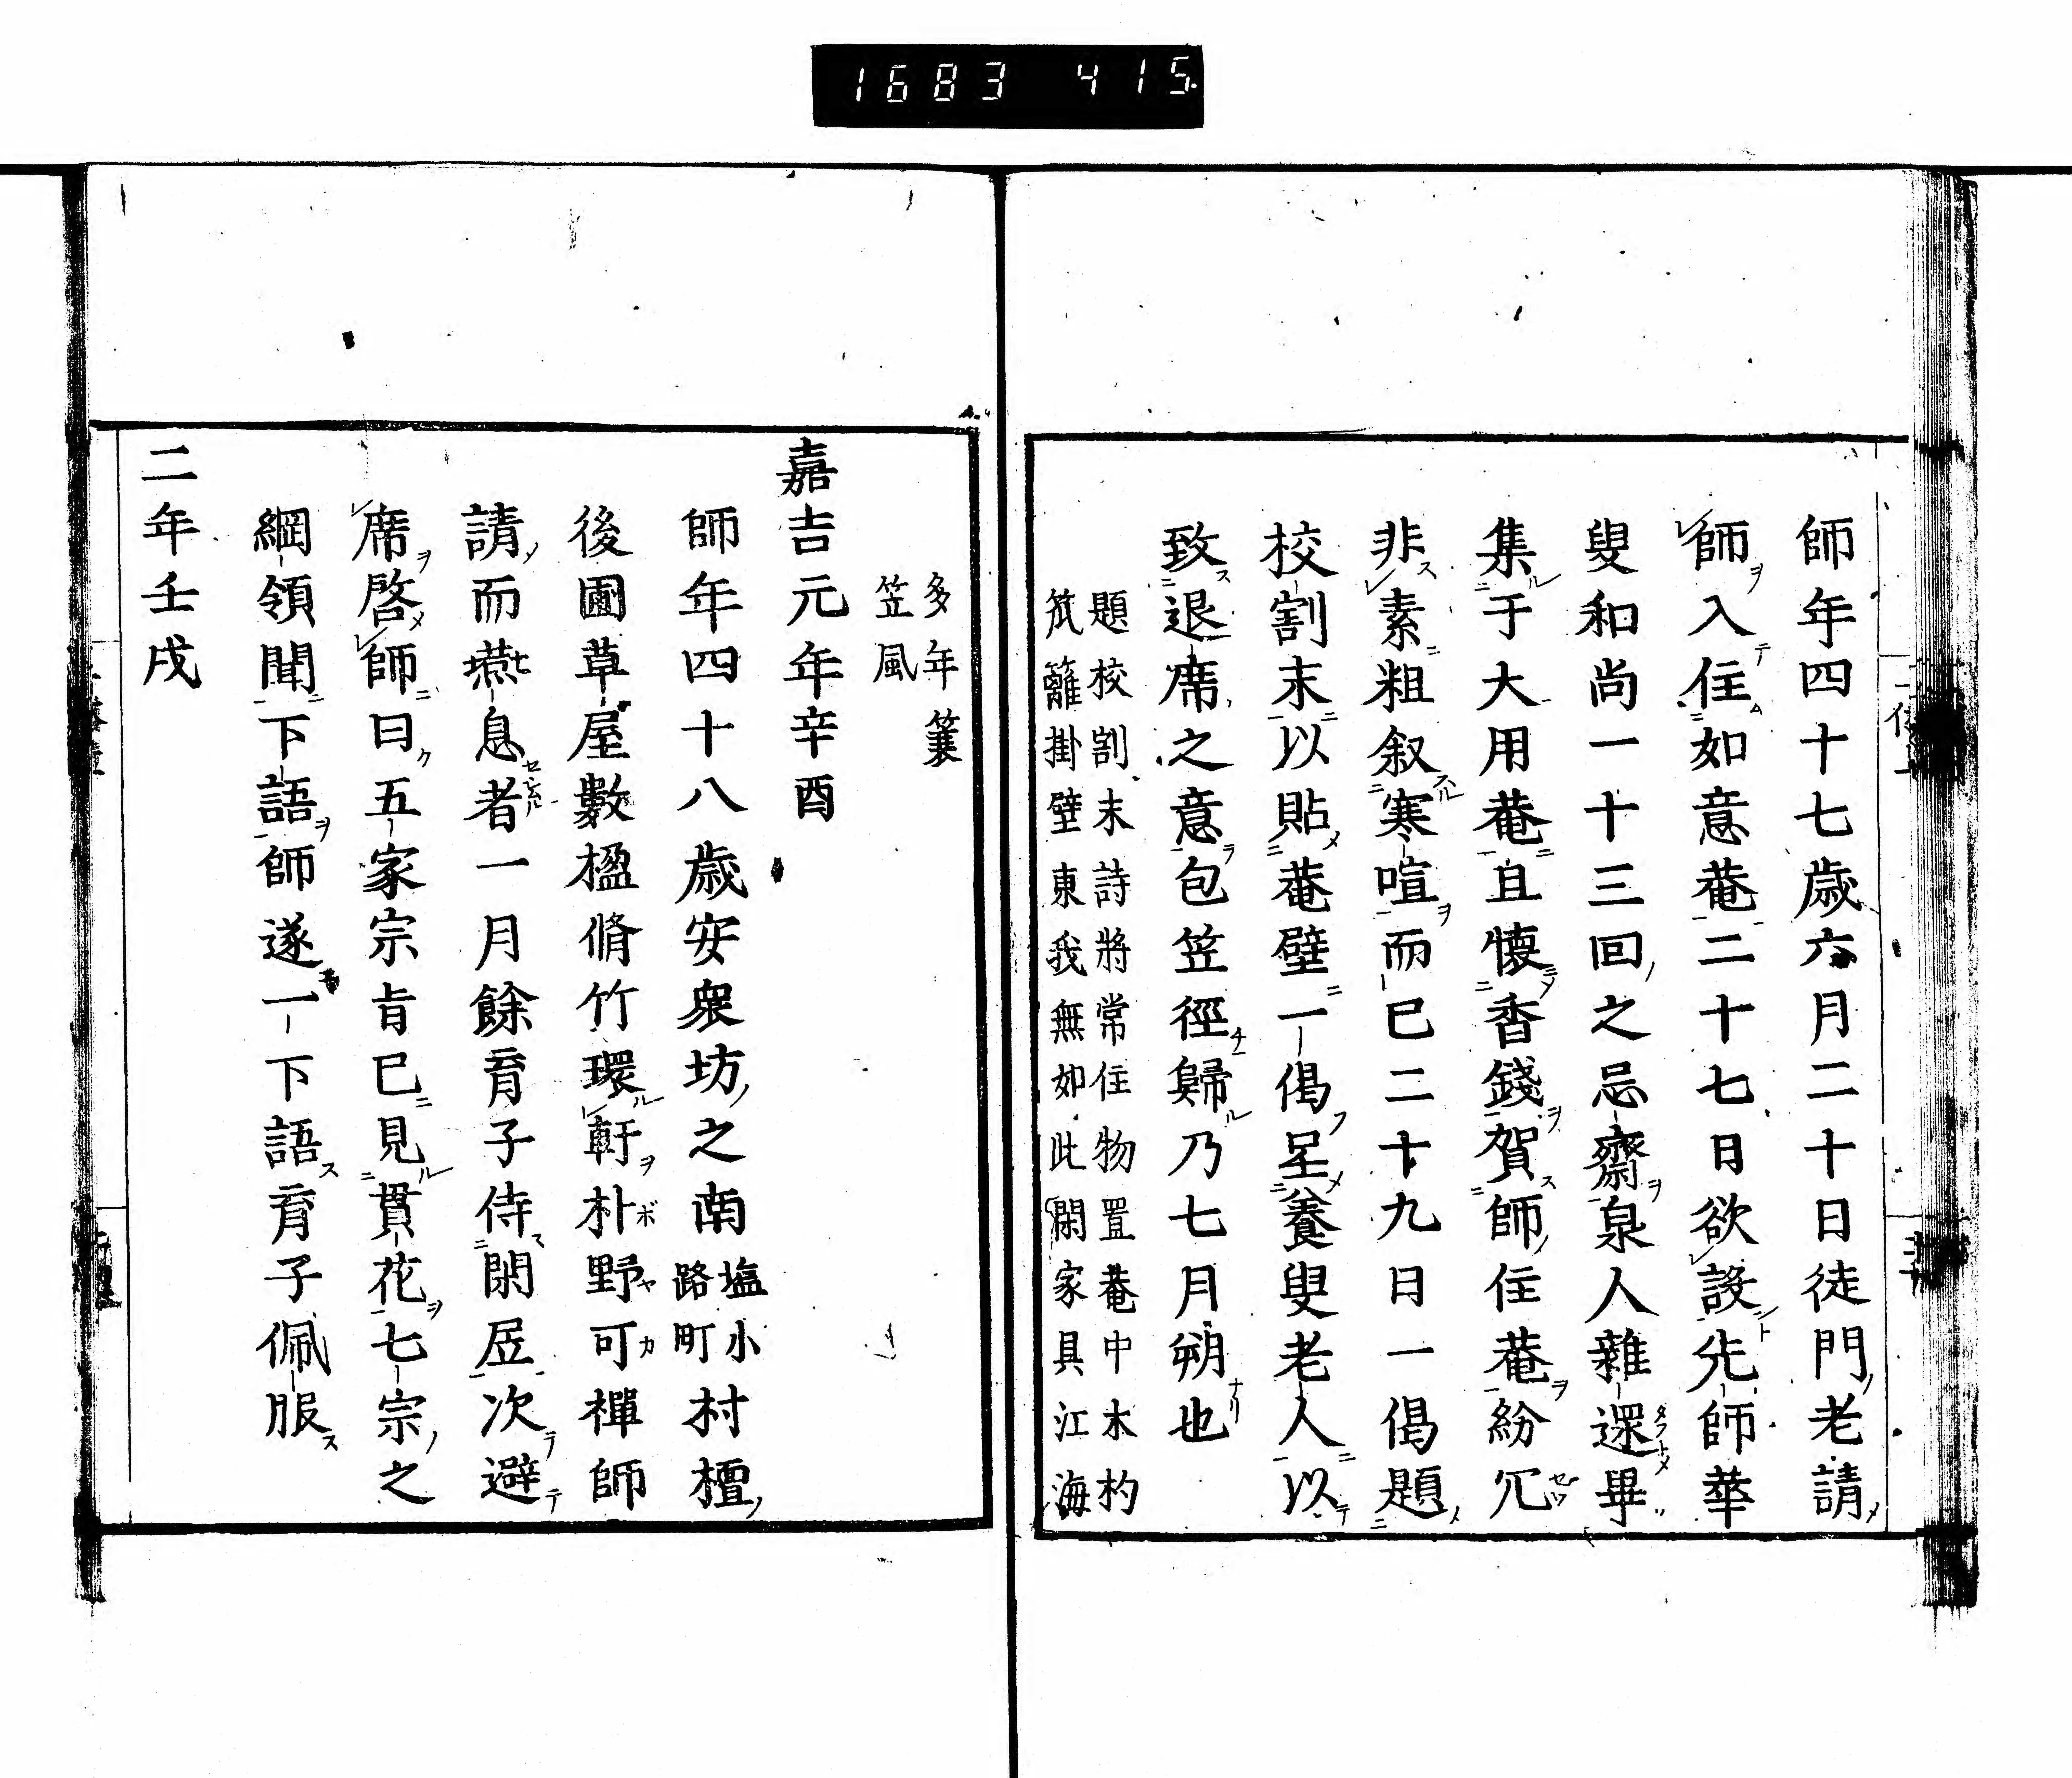 1683 415
師年四十七歳六月二十日徒門老請
師入住如意菴二十七日欲設先師華
叟和尚一十三回之忌齋泉人雜還畢
集于大用菴且懐香錢賀師住菴紛冗
非素粗叙寒喧而已二十九日一偈題
校割末以貼菴壁一偈呈養叟老人以
致退席之意包笠徑歸乃七月朔也
題校割末詩將常住物置菴中木杓
笊籬掛壁東我無如此閑家具江海
多年簑
笠風
嘉吉元年辛酉
師年四十八歳安衆坊之南塩小路町村檀
後圃草屋數楹脩竹環軒朴野可禪師
請而燕息者一月餘育子侍閑居次避
席啓師曰五家宗旨已見貫花七宗之
綱領聞下語師遂一下語育子佩服
二年壬戌